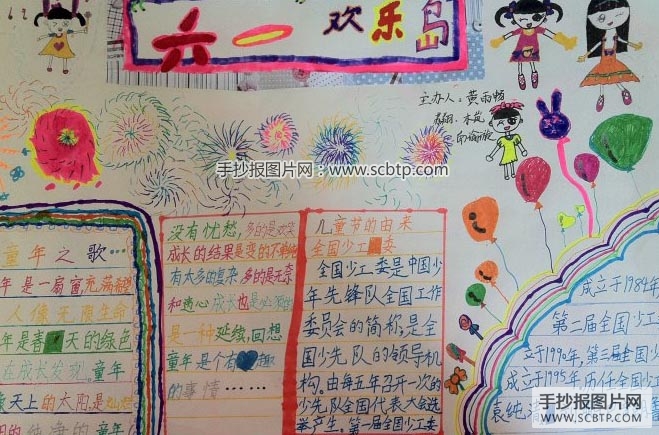 六一欢乐岛
主办人：黄雨畅
手抄报图片网：www.scbtp.com
童年之歌…
年是一扇窗，充满
人像无限生命
年是春天的绿色
在成长发现，童年
像天上的太阳是灿烂
没有忧愁，多的是欢笑
成长的结果是变的不单纯
有太多的复杂，多的是无奈
和违心，成长也是
是一种延续，回想
童年是个有趣
的事情……
儿童节的由来
全国少工委
全国少工委是中国少
年先锋队全国工作
委员会的简称，是全
国少先队的领导机
构。由每五年召开一次的
少先队全国代表大会选
举产生。第一届全国少工委
成立于1984年
第二届全国少工
立于1990年，第三届全国
成立于1995年，历任全国少
袁纯
手抄报图片网
www.scbtp.com